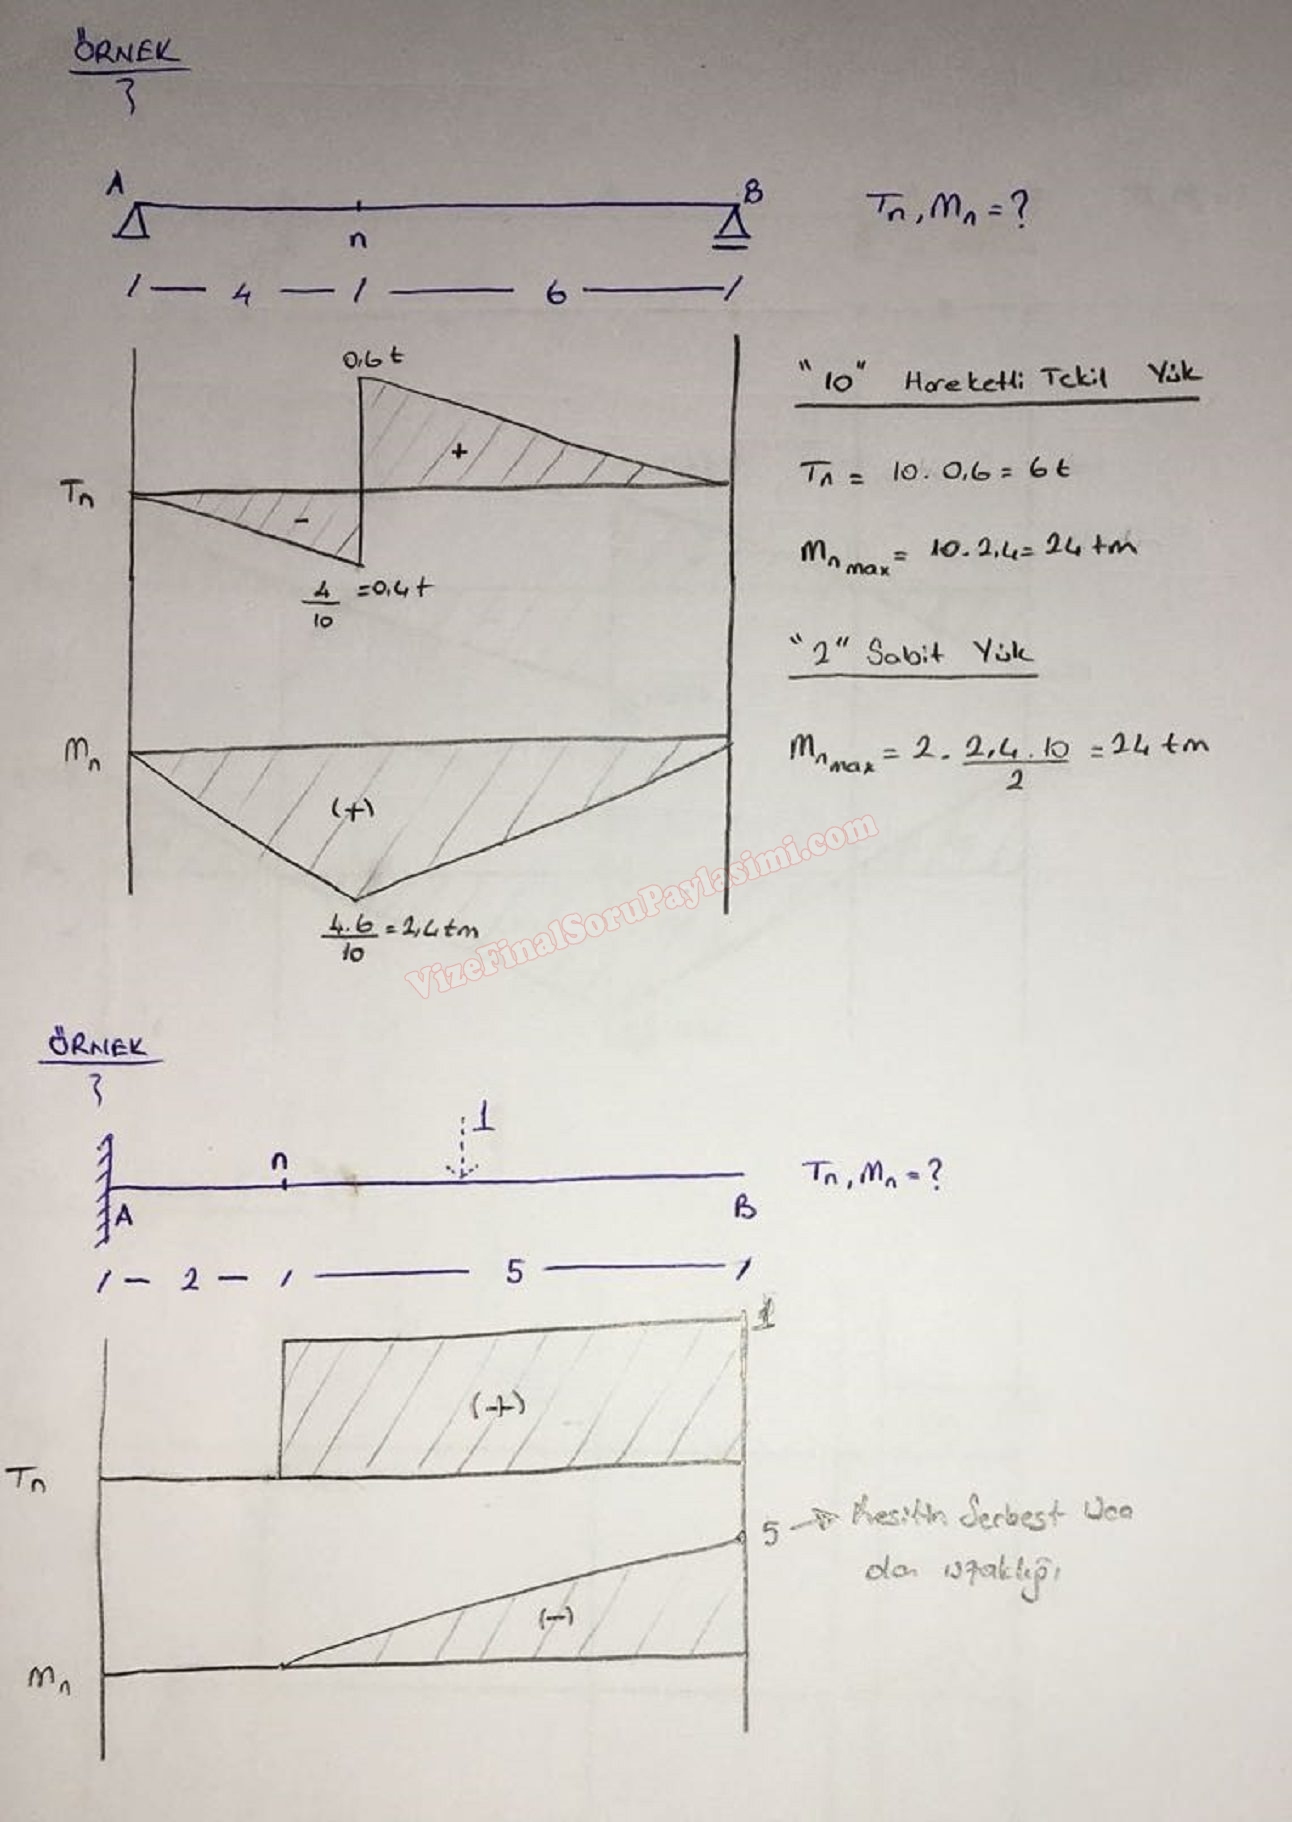 ÖRNEK
A
B
Tn, Mn = ?
n
4
6
0,6 t
"10" Hareketli Tekil Yük
+
Tn = 10. 0,6 = 6t
Tn
-
4/10 = 0,4 t
Mn max = 10. 2,4 = 24 tm
"2" Sabit Yük
Mn
(+)
Mn max = 2. 2,4.10/2 = 24 tm
4.6/10 = 2,4 tm
VizeFinalSoruPaylasimi.com
ÖRNEK
1
n
Tn, Mn = ?
A
B
2
5
1
(+)
Tn
5 → Kesitin Serbest Uca
olan uzaklığı
(-)
Mn